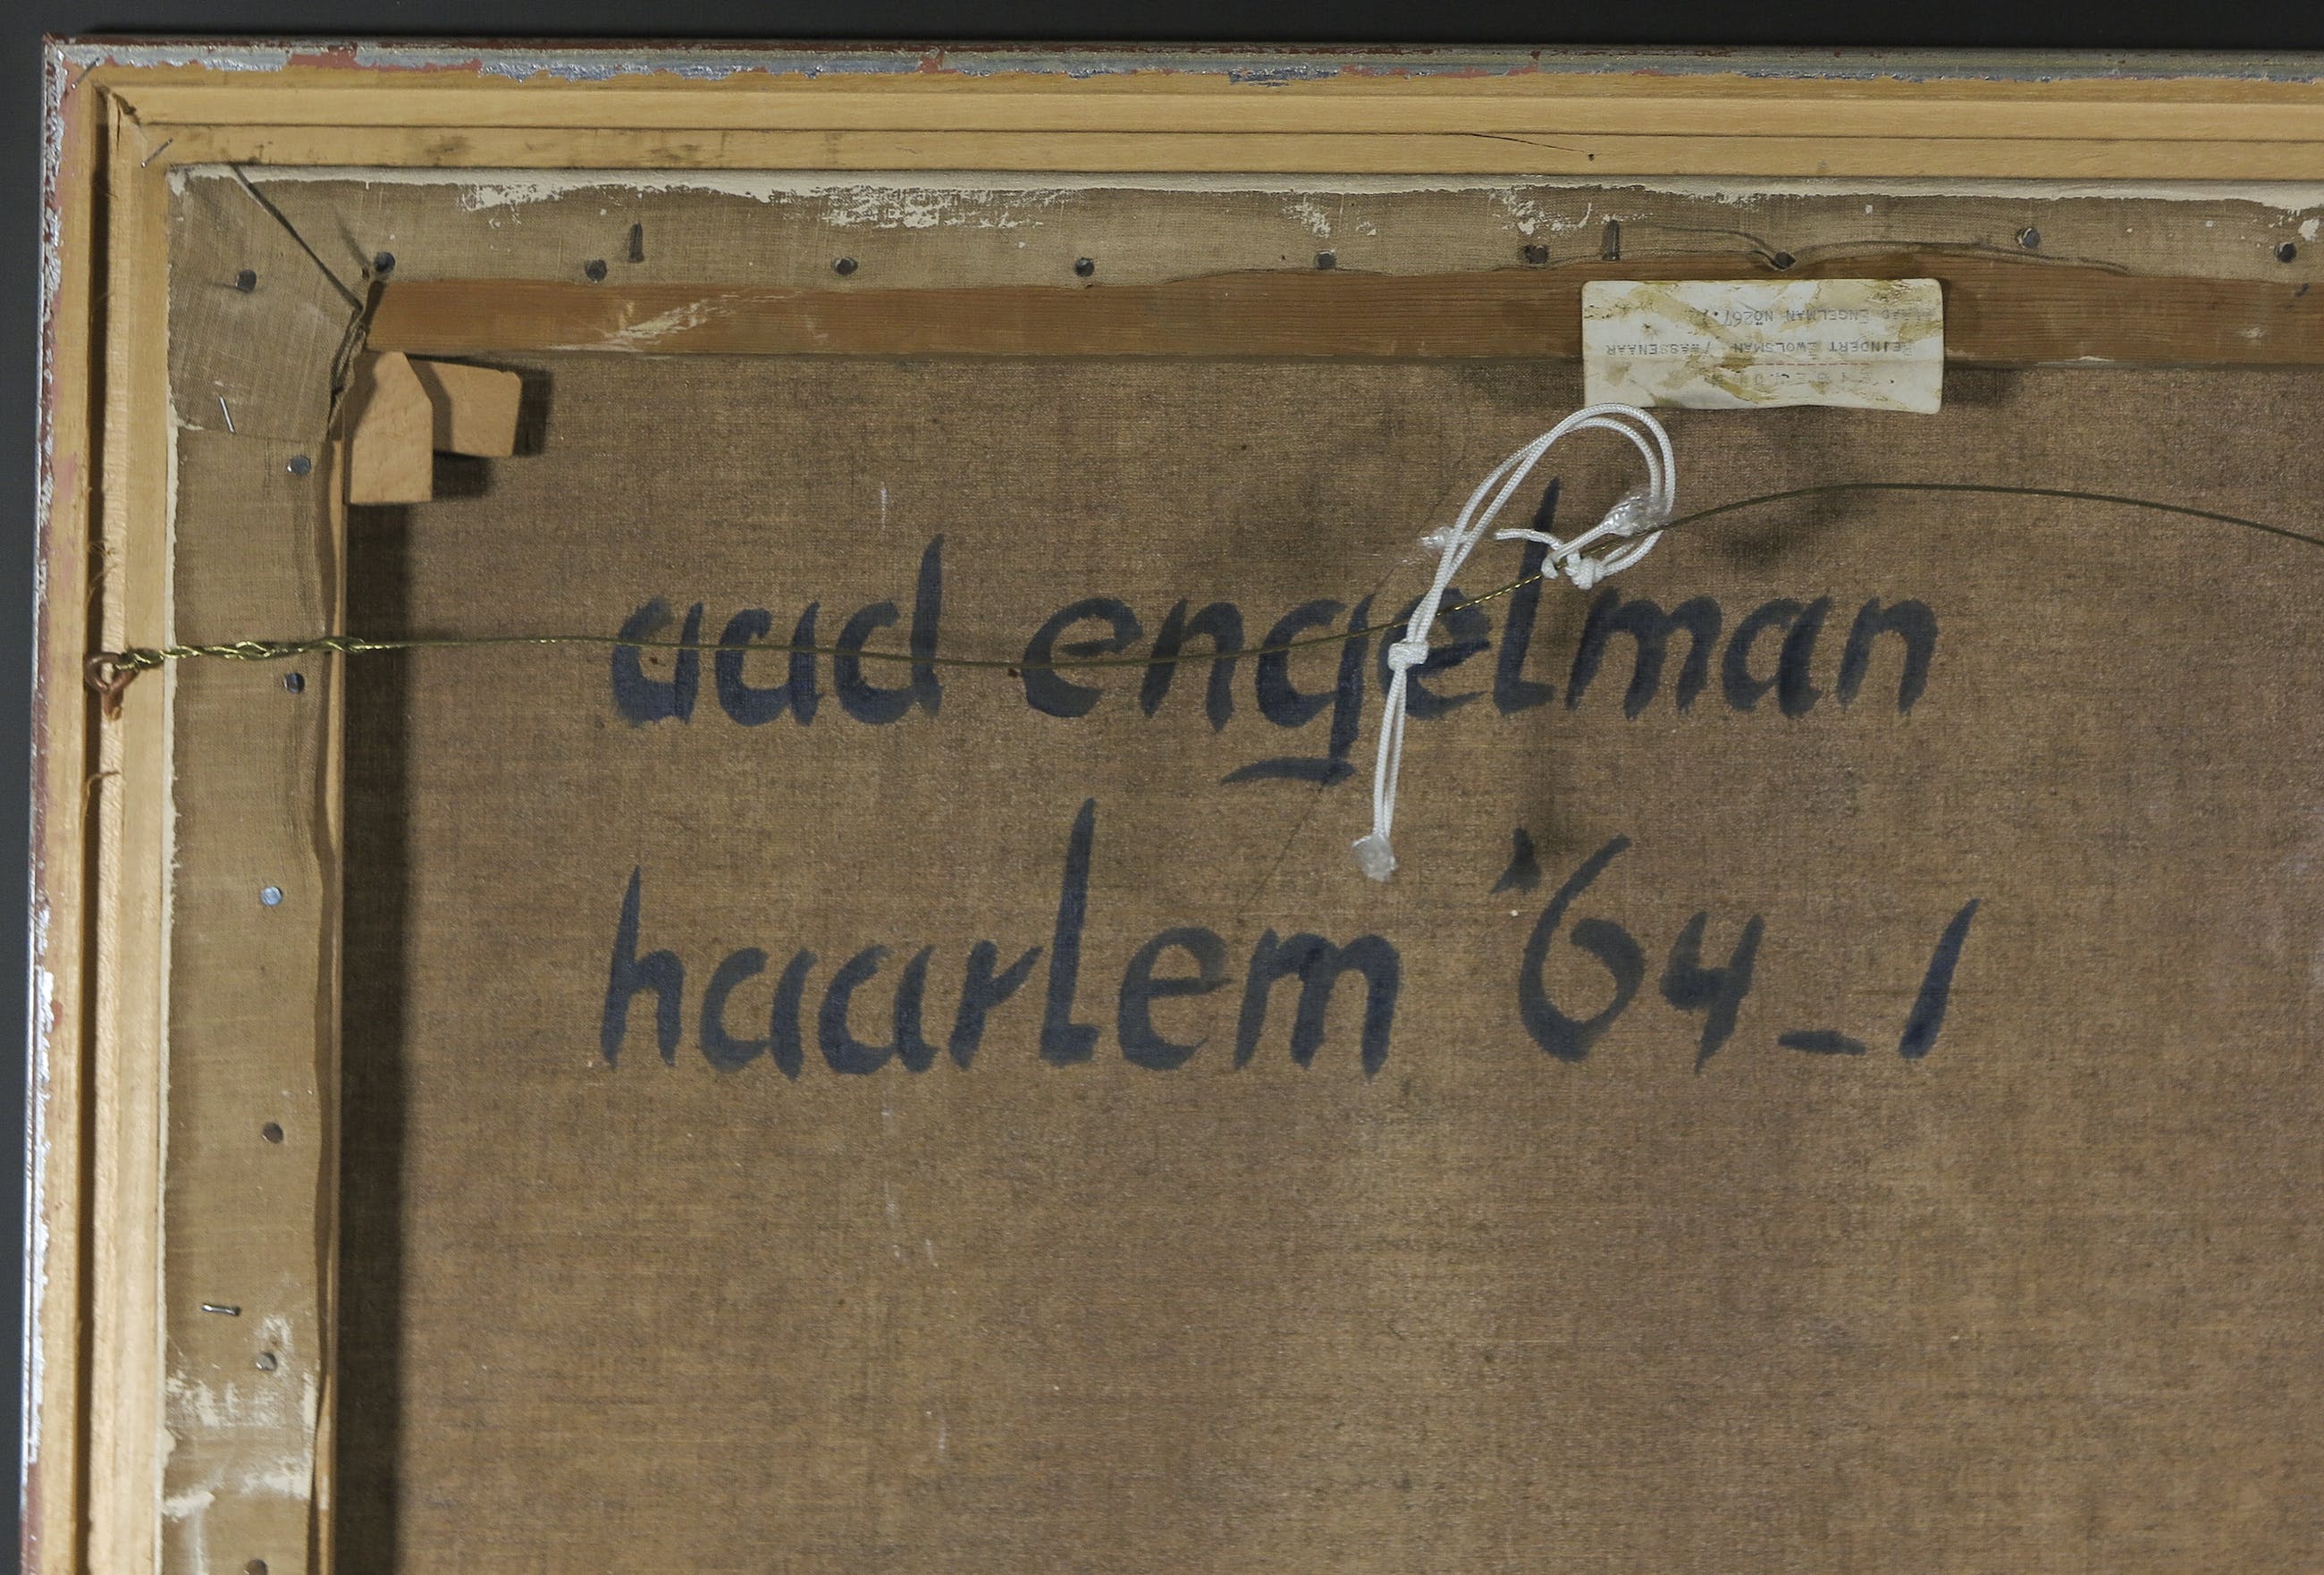 ENGELMAN No267.
WOLSMAN / WASSENAAR
aad engelman
haarlem '64_1